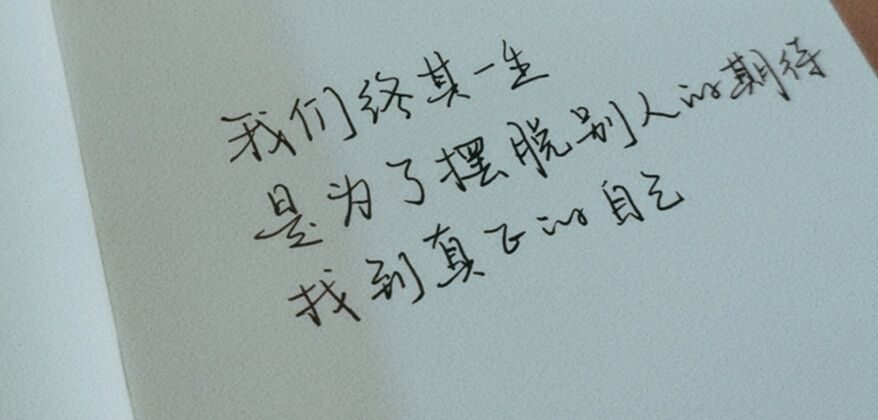 我们终其一生
是为了摆脱别人的期待
找到真正的自己